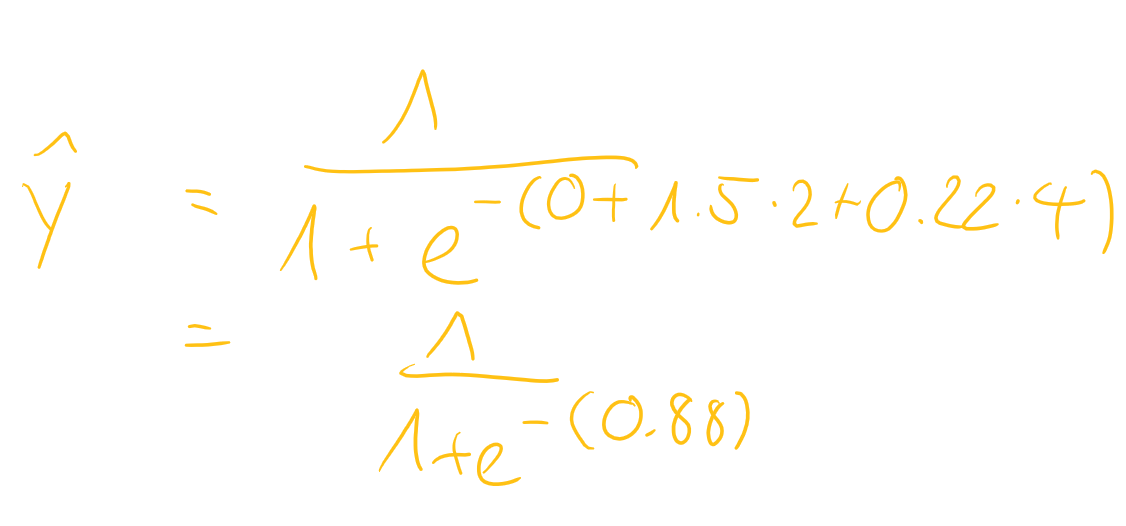 ŷ = 1 / (1 + e^-(0 + 1.5 · 2 + 0.22 · 4))
= 1 / (1 + e^-(0.88))